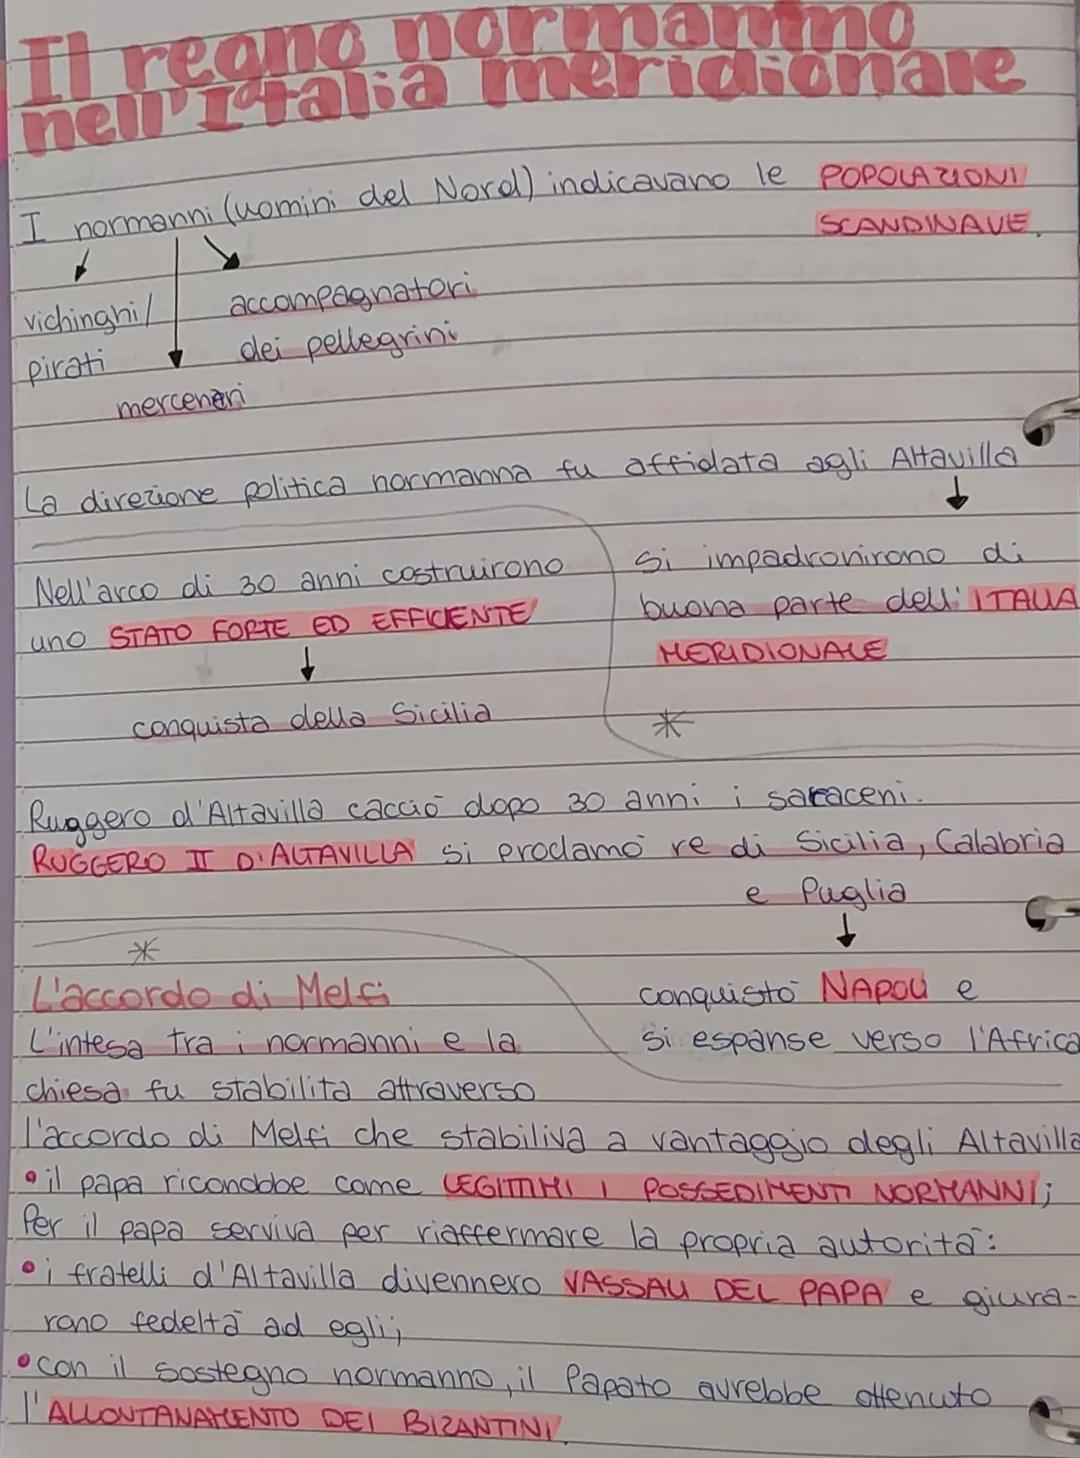 Il regno normanno
nell'Italia meridionale
I normanni (uomini del Nord) indicavano le POPOLAZIONI
SCANDINAVE.
vichinghi/
pirati
accompagnatori
dei pellegrini
mercenari
La direzione politica normanna fu affidata agli Altavilla
Nell'arco di 30 anni costruirono
uno STATO FORTE ED EFFICIENTE
conquista della Sicilia
si impadronirono di
buona parte dell'ITALIA
MERIDIONALE
*
Ruggero d'Altavilla cacciò dopo 30 anni i saraceni.
RUGGERO II D'ALTAVILLA si proclamò re di Sicilia, Calabria
e Puglia
conquistò NAPOLI e
si espanse verso l'Africa
*
L'accordo di Melfi
L'intesa tra i normanni e la
chiesa fu stabilita attraverso
l'accordo di Melfi che stabiliva a vantaggio degli Altavilla
• il papa riconobbe come LEGITTIMI I POSSEDIMENTI NORMANNI;
Per il papa serviva per riaffermare la propria autorità:
• i fratelli d'Altavilla divennero VASSALI DEL PAPA e giura-
rono fedeltà ad egli;
• con il sostegno normanno, il Papato avrebbe ottenuto
l'ALLONTANAMENTO DEI BIZANTINI.